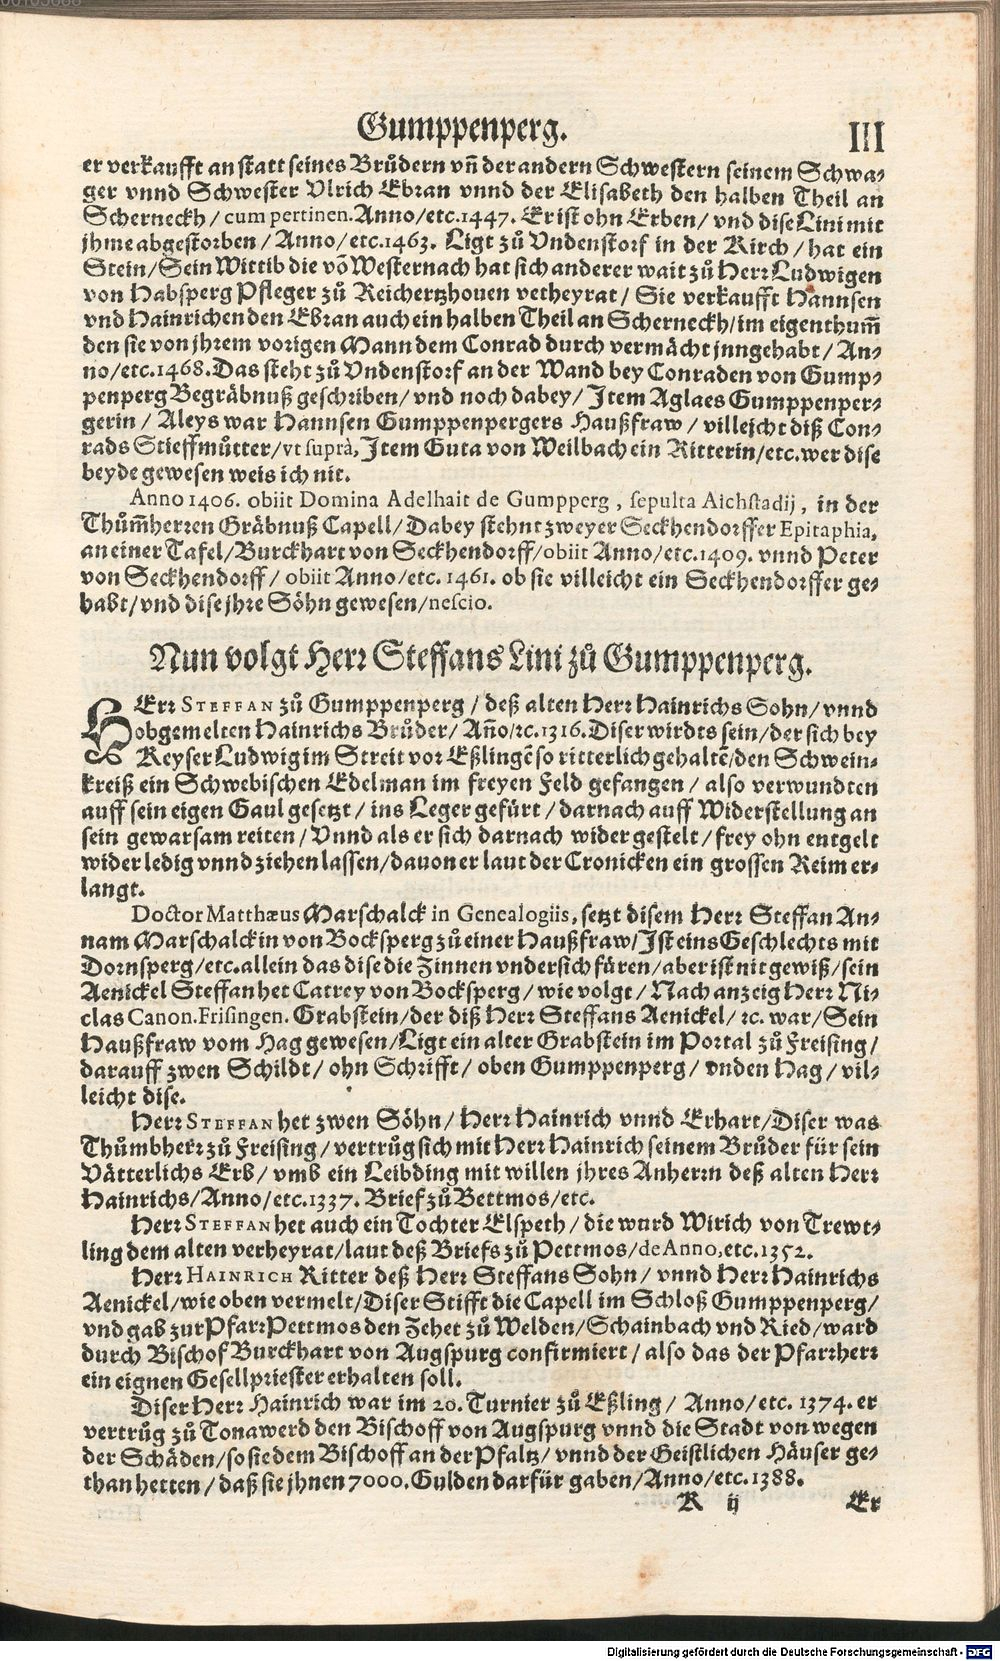 Gumppenperg. III
er verkaufft an statt seines Brůdern vñ der andern Schwestern seinem Schwa⸗
ger vnnd Schwester Vlrich Ebran vnnd der Elisabeth den halben Theil an
Scherneckh / cum pertinen. Anno/etc.1447. Er ist ohn Erben / vnd dise Lini mit
jhme abgestorben / Anno/etc.1463. Ligt zů Vndenstorf in der Kirch / hat ein
Stein/Sein Wittib die võ Westernach hat sich anderer wait zů Herr Ludwigen
von Habsperg Pfleger zů Reichertzhouen vetheyrat / Sie verkaufft Hannsen
vnd Hainrichen den Ebran auch ein halben Theil an Scherneckh/im eigenthum̃
den sie von jhrem vorigen Mann dem Conrad durch vermächt jnngehabt / An⸗
no/etc.1468. Das steht zů Vndenstorf an der Wand bey Conraden von Gump⸗
penperg Begräbnuß geschriben / vnd noch dabey / Jtem Aglaes Gumppenper⸗
gerin / Aleys war Hannsen Gumppenpergers Haußfraw / villeicht diß Con⸗
rads Stieffmůtter/vt suprà, Jtem Guta von Weilbach ein Ritterin/etc. wer dise
beyde gewesen weis ich nit.
Anno 1406. obiit Domina Adelhait de Gumpperg , sepulta Aichstadij, in der
Thům̃herren Gräbnuß Capell/ Dabey stehnt zweyer Seckhendorffer Epitaphia,
an einer Tafel/Burckhart von Seckhendorff/obiit Anno/etc.1409. vnnd Peter
von Seckhendorff / obiit Anno/etc. 1461. ob sie villeicht ein Seckhendorffer ge⸗
habt/vnd dise jhre Söhn gewesen/nescio.
Nun volgt Herr Steffans Lini zů Gumppenperg.
HErr STEFFAN zů Gumppenperg / deß alten Herr Hainrichs Sohn / vnnd
obgemelten Hainrichs Brůder/ Añο/ꝛc.1316. Diser wirdts sein/der sich bey
Keyser Ludwig im Streit vor Eßlingẽ so ritterlich gehaltẽ/den Schwein⸗
kreiß ein Schwebischen Edelman im freyen Feld gefangen / also verwundten
auff sein eigen Gaul gesetzt / ins Leger gefürt / darnach auff Widerstellung an
sein gewarsam reiten / Vnnd als er sich darnach wider gestelt / frey ohn entgelt
wider ledig vnnd ziehen lassen/dauon er laut der Cronicken ein grossen Reim er⸗
langt.
Doctor Matthæus Marschalck in Genealogiis, setzt disem Herr Steffan An⸗
nam Marschalckin von Bocksperg zů einer Haußfraw/ Jst eins Geschlechts mit
Dornsperg/etc. allein das dise die Zinnen vndersich füren/aber ist nit gewiß/sein
Aenickel Steffan het Catrey von Bocksperg / wie volgt / Nach anzeig Herr Ni⸗
clas Canon. Frisingen. Grabstein/der diß Herr Steffans Aenickel/ ꝛc. war/Sein
Haußfraw vom Hag gewesen/Ligt ein alter Grabstein im Portal zů Freising/
darauff zwen Schildt / ohn Schrifft / oben Gumppenperg / vnden Hag / vil⸗
leicht dise.
Herr STEFFAN het zwen Söhn / Herr Hainrich vnnd Erhart/Diser was
Thůmbherr zů Freising / vertrůg sich mit Herr Hainrich seinem Brůder für sein
Vätterlichs Erb / vmb ein Leibding mit willen jhres Anherrn deß alten Herr
Hainrichs/Anno/etc.1337. Brief zů Bettmos/etc.
Herr STEFFAN het auch ein Tochter Elspeth / die wurd Wirich von Trewt⸗
ling dem alten verheyrat/laut deß Briefs zů Pettmos/de Anno, etc.1352.
Herr HAINRICH Ritter deß Herr Steffans Sohn / vnnd Herr Hainrichs
Aenickel/wie oben vermelt/Diser Stifft die Capell im Schloß Gumppenperg/
vnd gab zur Pfarr Pettmos den Zehet zů Welden/Schainbach vnd Ried/ward
durch Bischof Burckhart von Augspurg confirmiert / also das der Pfarrherr
ein eignen Gesellpriester erhalten soll.
Diser Herr Hainrich war im 20. Turnier zů Eßling / Anno/etc. 1374. er
vertrůg zů Tonawerd den Bischoff von Augspurg vnnd die Stadt von wegen
der Schäden/so sie dem Bischoff an der Pfaltz/ vnnd der Geistlichen Häuser ge⸗
than hetten / daß sie jhnen 7000. Gulden darfür gaben/Anno/etc.1388.
K ij Er
Digitalisierung gefördert durch die Deutsche Forschungsgemeinschaft - DFG